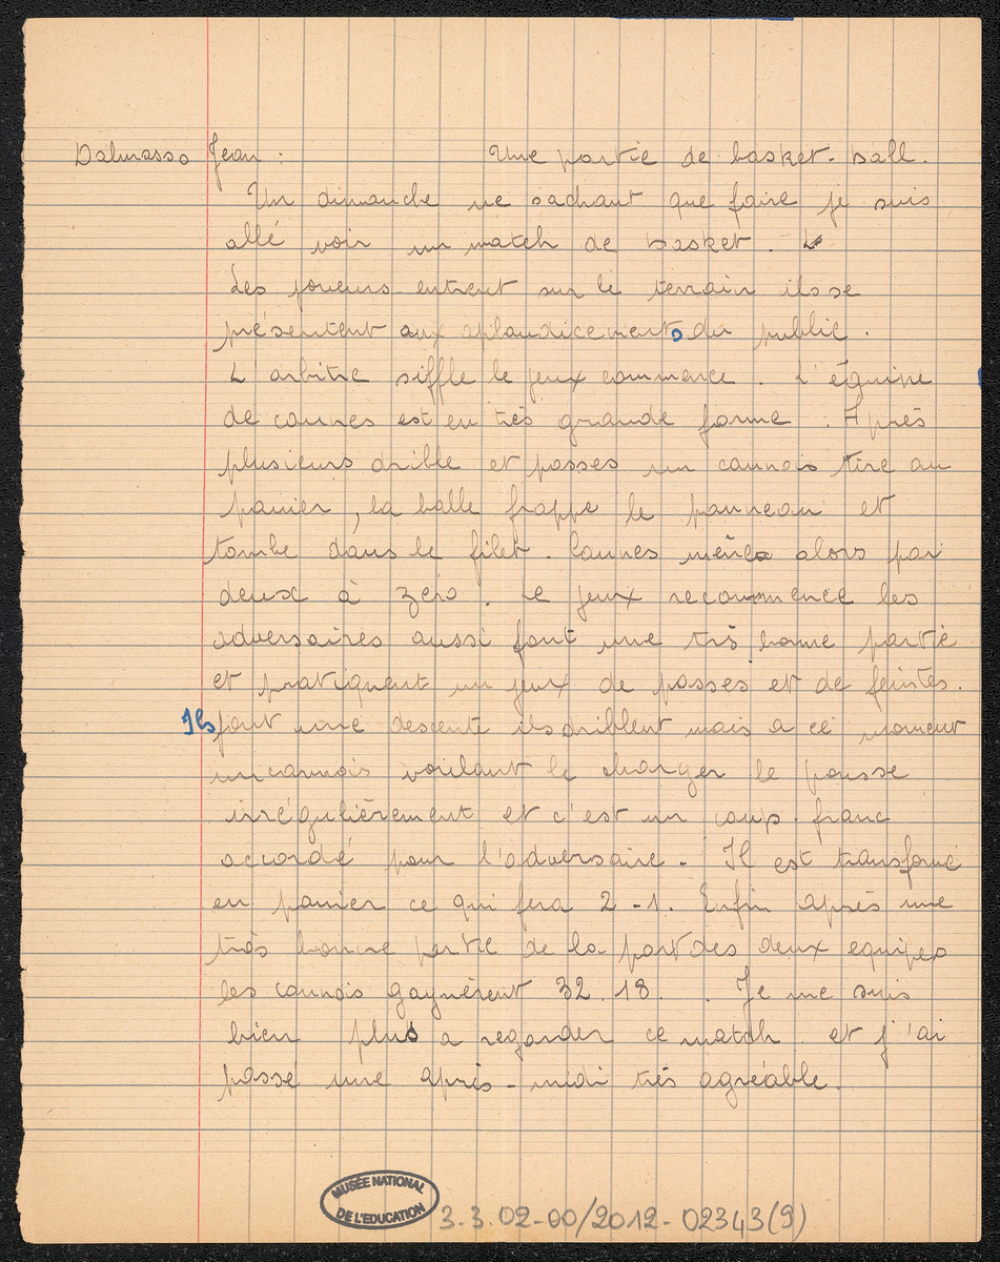 Dalmasso Jean : Une partie de basket-ball.
Un dimanche ne sachant que faire je suis
allé voir un match de basket.
Les joueurs entrent sur le terrain ils se
présentent aux aplaudicements du public.
L'arbitre siffle le jeux commence. L'équipe
de cannes est en très grande forme. Après
plusieurs drible et passes un cannois tire au
panier, la balle frappe le panneau et
tombe dans le filet. Cannes mène alors par
deux à zéro. Le jeux recommence les
adversaires aussi font une très bonne partie
et pratiquent un jeux de passes et de feintes.
Ils font une descente ils driblent mais a ce moment
un cannois voulant le charger le pousse
irrégulièrement et c'est un coup-franc
accordé pour l'adversaire. Il est transformé
en panier ce qui fera 2-1. Enfin après une
très bonne partie de la part des deux equipes
les cannois gagnèrent 32.18. Je me suis
bien plus a regarder ce match et j'ai
passé une après-midi très agréable.
MUSÉE NATIONAL
DE L'EDUCATION
3-3.02-00/2012-02343(9)